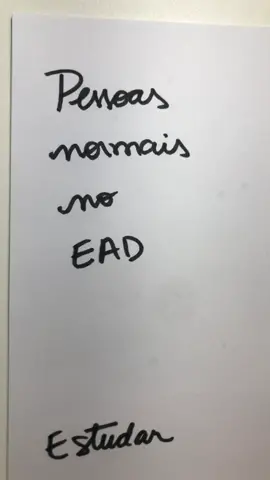 Pessoas
normais
no
EAD
Estudar